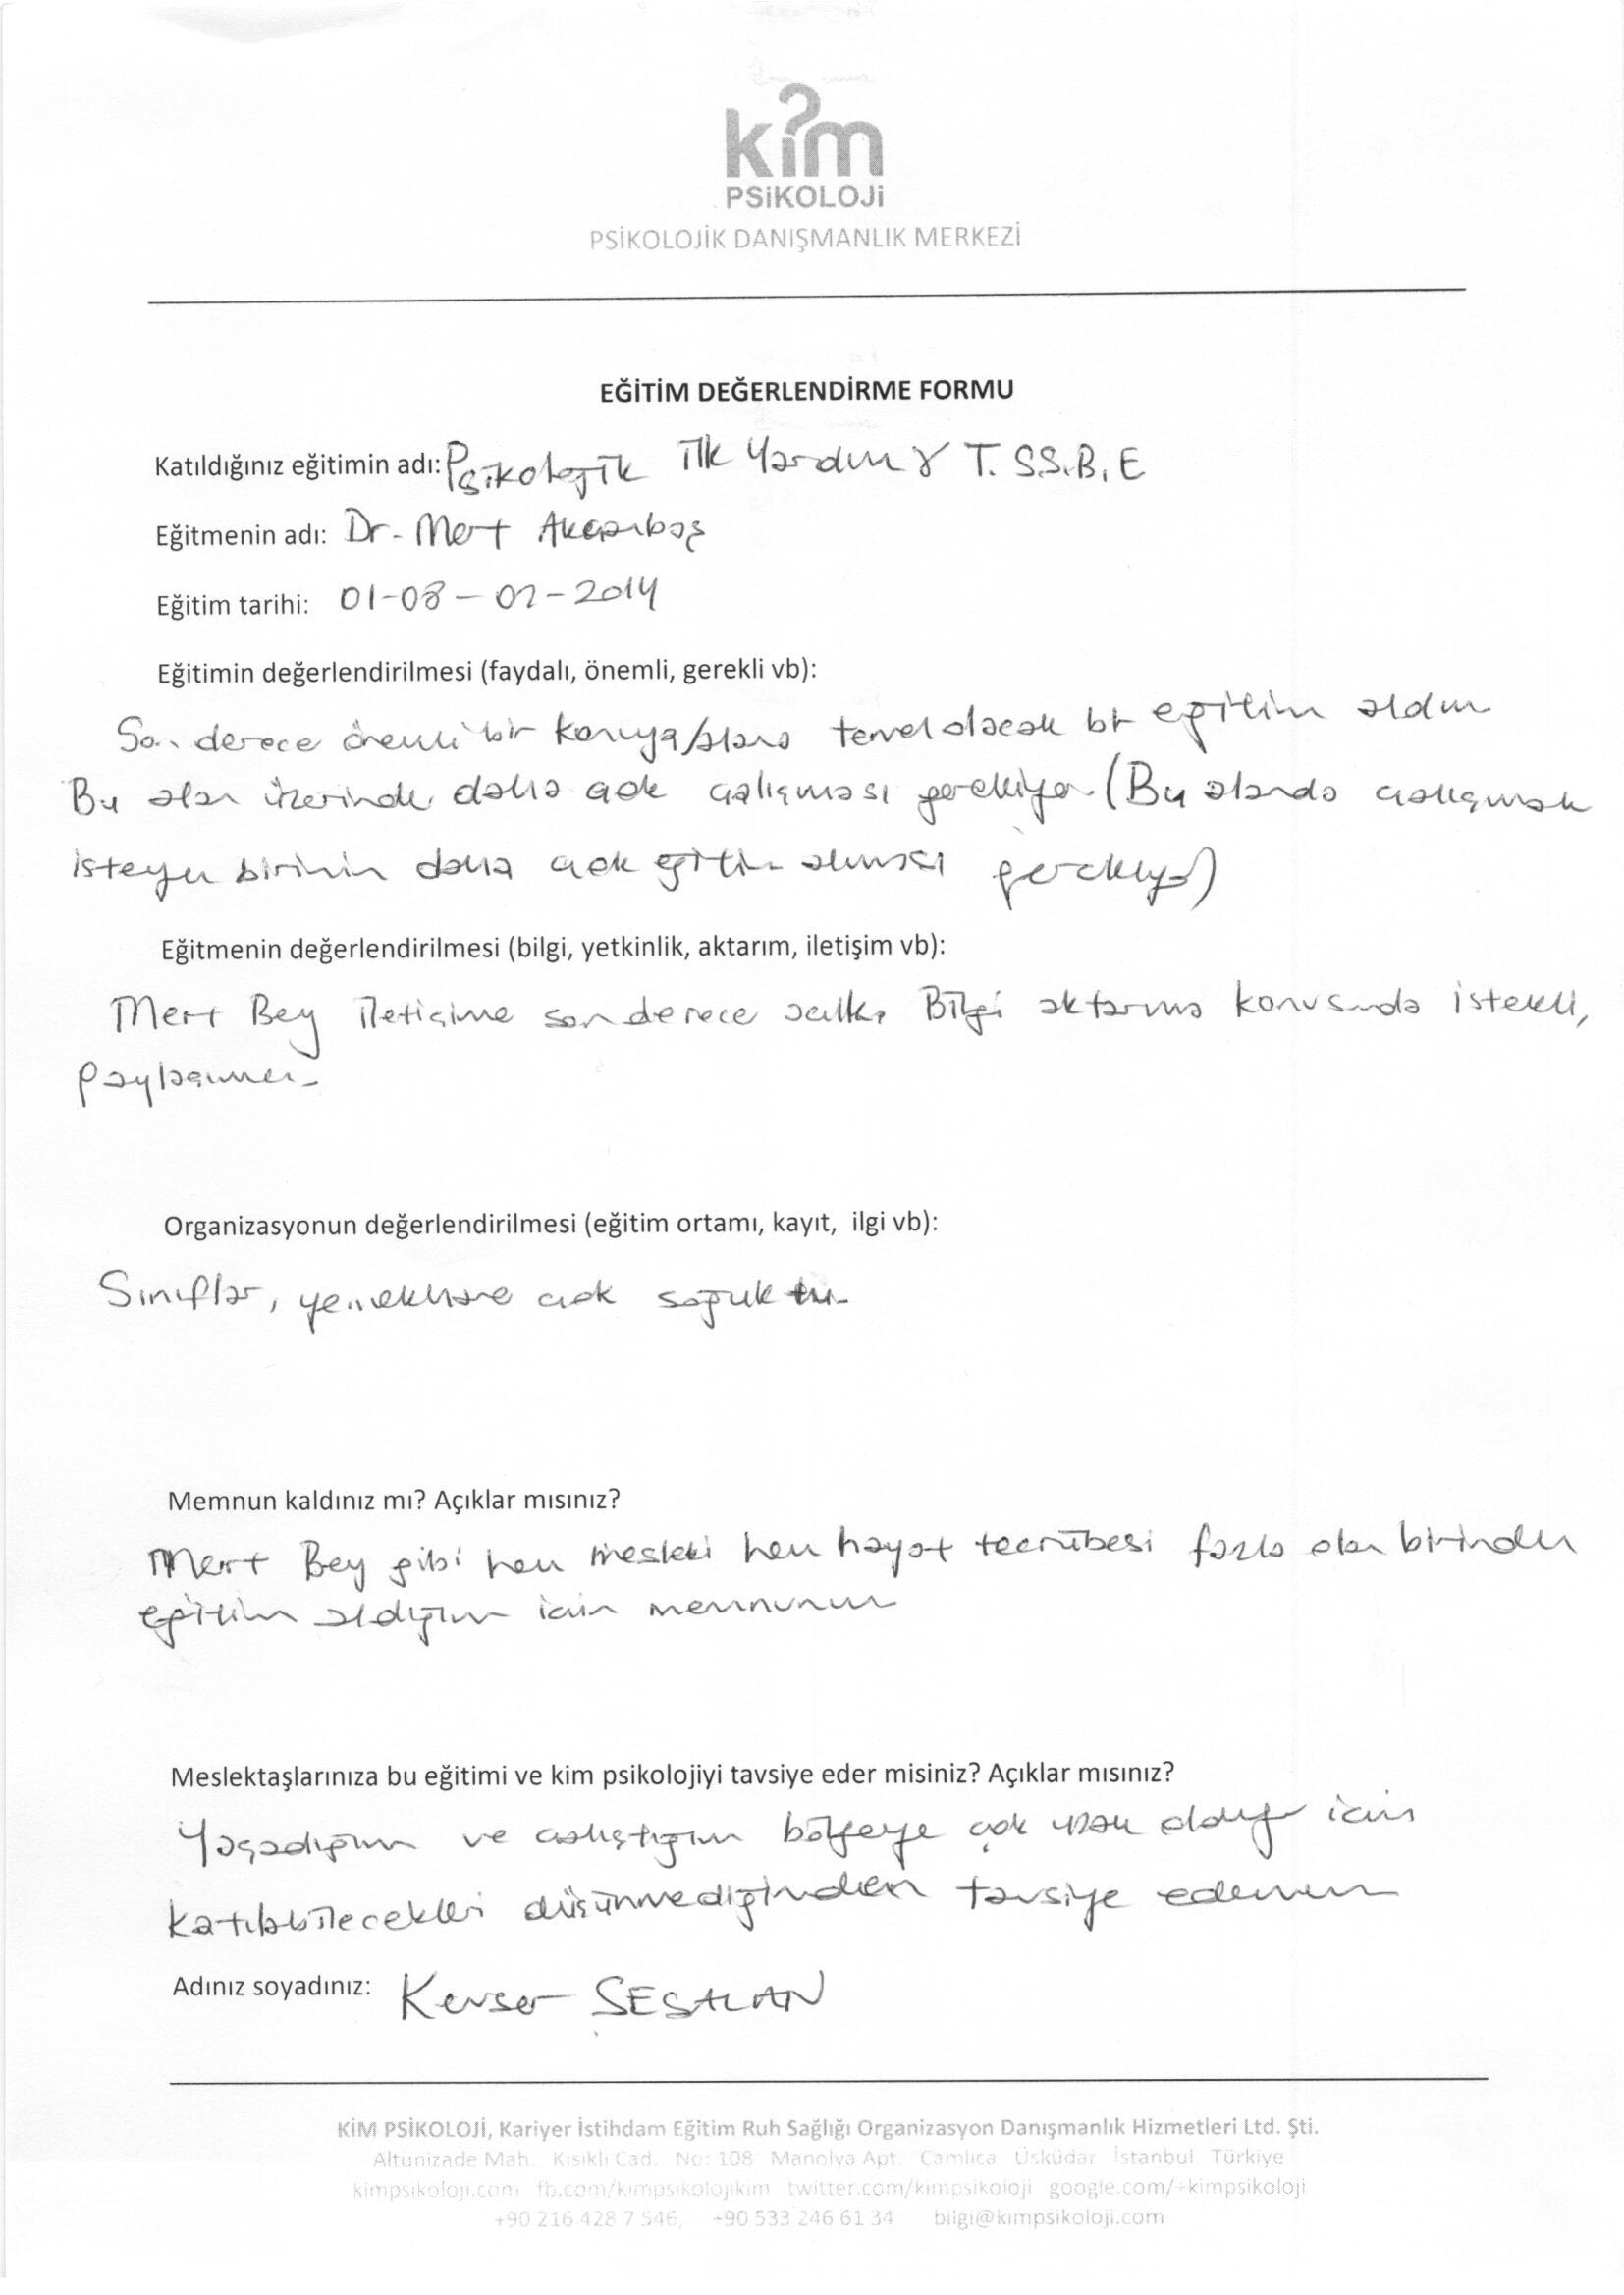 kim
PSiKOLOJi
PSİKOLOJİK DANIŞMANLIK MERKEZİ
EĞİTİM DEĞERLENDİRME FORMU
Katıldığınız eğitimin adı: Psikolojik ilk Yardım & T.S.S.B.E
Eğitmenin adı: Dr. Mert Akcanbaş
Eğitim tarihi: 01-08-02-2014
Eğitimin değerlendirilmesi (faydalı, önemli, gerekli vb):
Son derece önemli bir konuya/alana temel olacak bir eğitim aldım
Bu alan üzerinde daha çok çalışması gerekiyor (Bu alanda çalışmak
isteyen birinin daha çok eğitim alması gerekiyor)
Eğitmenin değerlendirilmesi (bilgi, yetkinlik, aktarım, iletişim vb):
Mert Bey iletişime son derece açık. Bilgi aktarma konusunda istekli,
paylaşımcı.
Organizasyonun değerlendirilmesi (eğitim ortamı, kayıt, ilgi vb):
Sınıflar, yemekhane çok soğuktu.
Memnun kaldınız mı? Açıklar mısınız?
Mert Bey gibi hem mesleki hem hayat tecrübesi fazla olan birinden
eğitim aldığım için memnunum
Meslektaşlarınıza bu eğitimi ve kim psikolojiyi tavsiye eder misiniz? Açıklar mısınız?
Yaşadığım ve çalıştığım bölgeye çok uzak olduğu için
katılabilecekleri düşünmediğinden tavsiye edemem
Adınız soyadınız: Kevser SESALAN
KİM PSİKOLOJİ, Kariyer İstihdam Eğitim Ruh Sağlığı Organizasyon Danışmanlık Hizmetleri Ltd. Şti.
Altunizade Mah. Kısıklı Cad. No: 108 Manolya Apt. Çamlıca Üsküdar İstanbul Türkiye
kimpsikoloji.com fb.com/kimpsikolojikim twitter.com/kimpsikoloji google.com/+kimpsikoloji
+90 216 428 7 546, +90 533 246 61 34 bilgi@kimpsikoloji.com